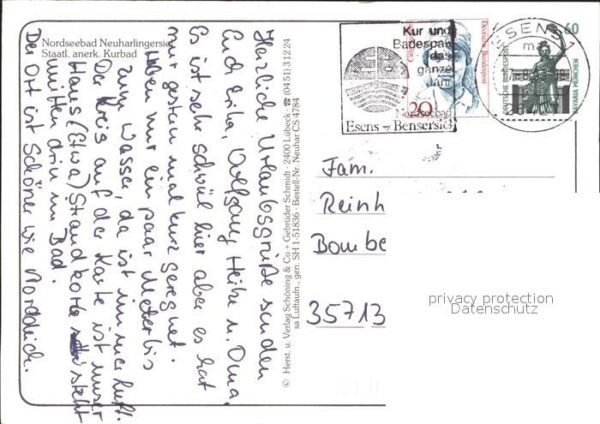 Nordseebad Neuharlingersiel
Staatl. anerk. Kurbad
Herzliche Urlaubsgrüße senden
Euch Erika, Wolfgang, Heike u. Oma.
Es ist sehr schwül hier aber es hat
nur gestern mal kurz geregnet.
Haben nur ein paar Meter bis
zum Wasser, da ist immer Luft.
Der Kreis auf der Karte ist unser
Haus (Etwa) Strandkorb steht
mitten drin im Bad.
Der Ort ist schöner wie Norddeich.
© Herst. u. Verlag Schöning & Co + Gebrüder Schmidt · 2400 Lübeck ☎ (0451) 31224
sa Luftaufn., gen. SH 1-51836 · Bestell-Nr. Neuhar CS 4784
Kur und
Badespaß
das
ganze
Jahr
Nordseebad
Esens - Bensersiel
20
Deutsche Bundespost
ESENS
60
BAVARIA MÜNCHEN
Fam.
Reinh
Bombe
35713
privacy protection
Datenschutz